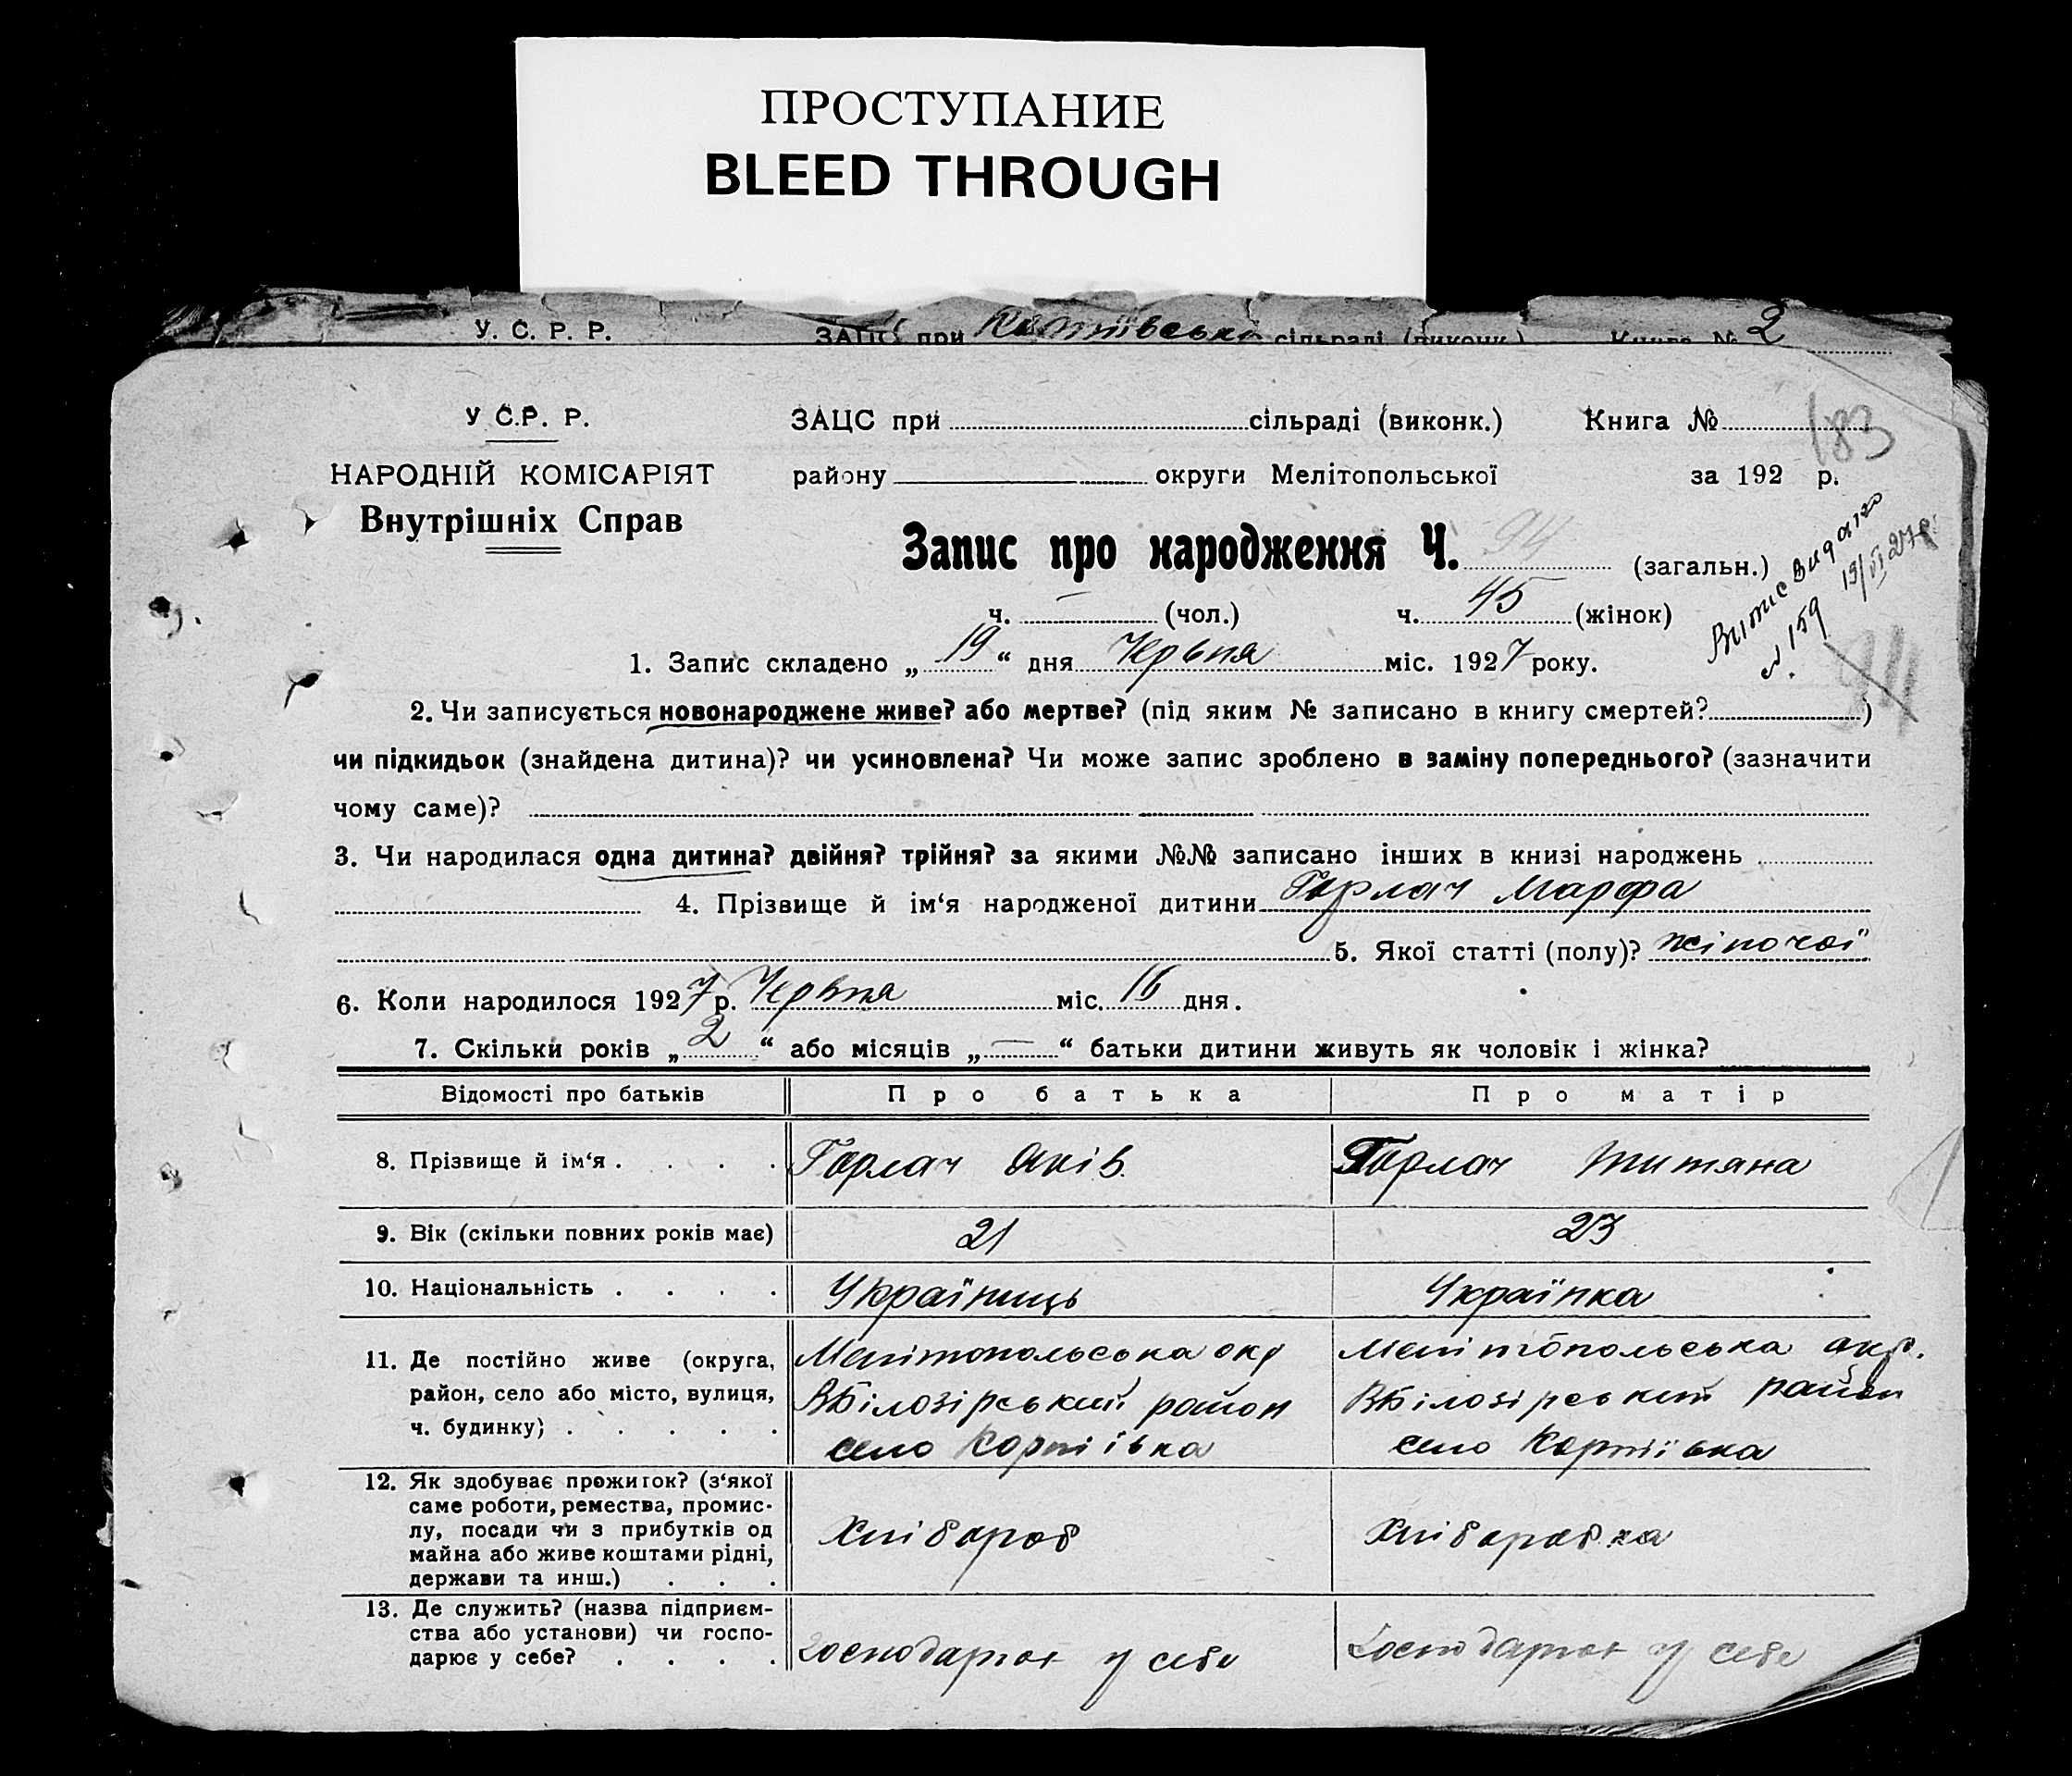 ПРОСТУПАНИЕ
BLEED THROUGH
У. С. Р. Р. ЗАЦС при сільраді (виконк.) Книга № 2
У С.Р. Р. ЗАЦС при сільраді (виконк.) Книга № 183
НАРОДНІЙ КОМІСАРІЯТ району округи Мелітопольської за 192 р.
Внутрішніх Справ
Запис про народження Ч. 94 (загальн.)
Випис видано
№ 159 19/VI 27 р.
ч. — (чол.) ч. 45 (жінок)
94
1. Запис складено „ 19 “ дня Червня міс. 1927 року.
2. Чи записується новонароджене живе? або мертве? (під яким № записано в книгу смертей? )
чи підкидьок (знайдена дитина)? чи усиновлена? Чи може запис зроблено в заміну попереднього? (зазначити
чому саме)?
3. Чи народилася одна дитина? двійня? трійня? за якими №№ записано інших в книзі народжень
4. Прізвище й ім‘я народженої дитини Горлач Марфа
5. Якої статті (полу)? жіночої
6. Коли народилося 1927 р. Червня міс. 16 дня.
7. Скільки років „ 2 “ або місяців „ — “ батьки дитини живуть як чоловік і жінка?
Відомості про батьків Про батька Про матір
8. Прізвище й ім‘я . . . . Горлач Яків Горлач Титяна
9. Вік (скільки повних років має) 21 23
10. Національність . . . . Українець Українка
11. Де постійно живе (округа, Мелітопольська окр Мелітопольська окр.
район, село або місто, вулиця, ВБілозірський район ВБілозірський район
ч. будинку) . . . . . село село
12. Як здобуває прожиток? (з‘якої
саме роботи, ремества, промис-
лу, посади чи з прибутків од Хлібороб Хліборобка
майна або живе коштами рідні,
держави та инш.) . . .
13. Де служить? (назва підприєм-
ства або установи) чи госпо-
дарює у себе? . . . . господарює у себе господарює у себе